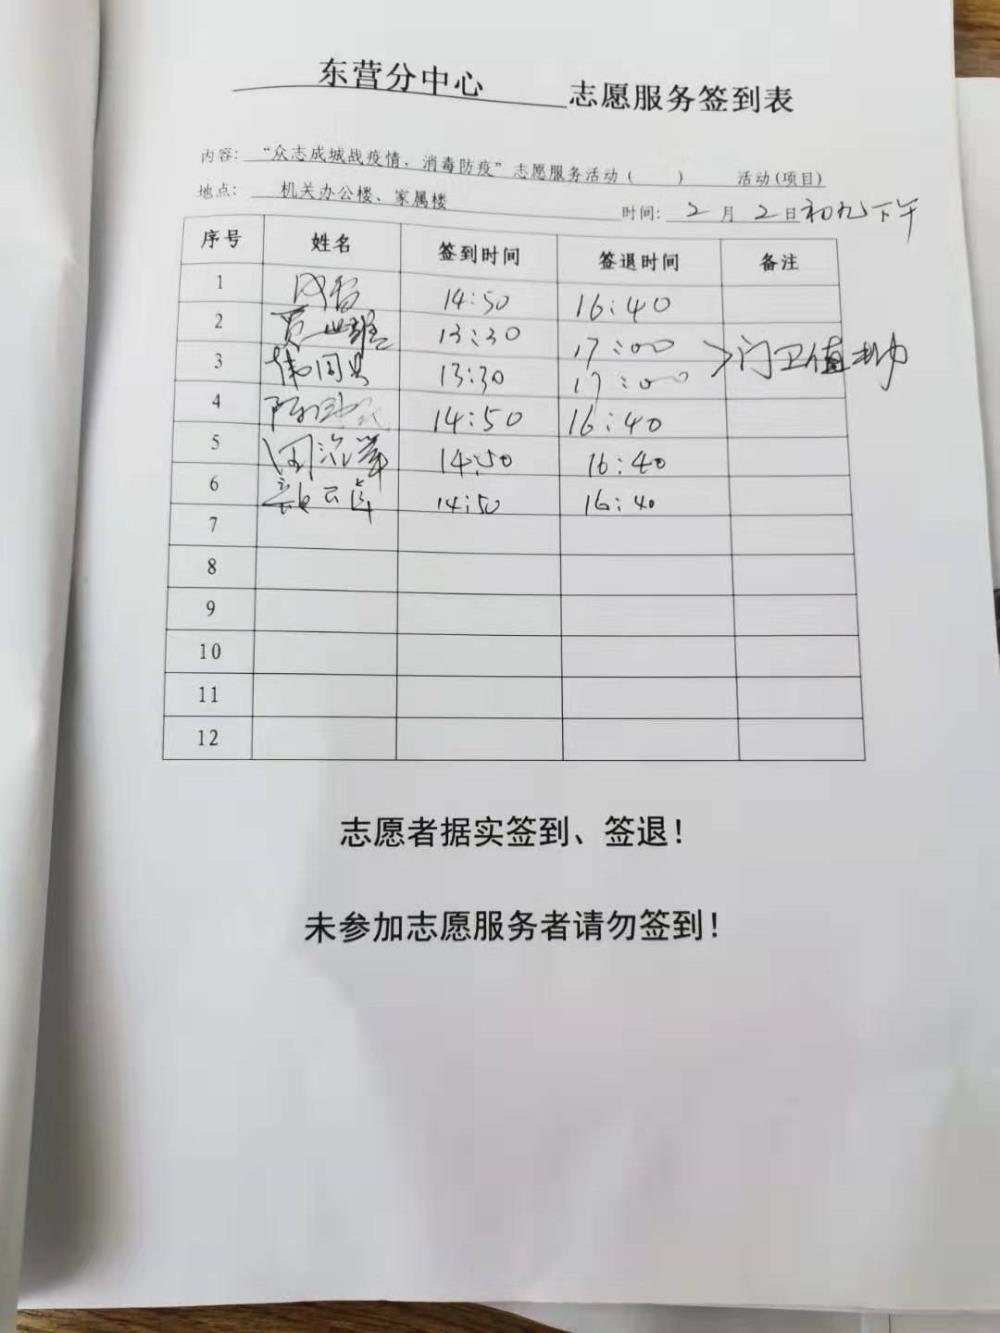 东营分中心 志愿服务签到表
内容：“众志成城战疫情，消毒防疫”志愿服务活动（ ） 活动(项目)
地点： 机关办公楼、家属楼
时间：2月2日初九下午
序号 姓名 签到时间 签退时间 备注
1 14:50 16:40
2 13:30 17:00
3 13:30 17:00 门卫值勤
4 14:50 16:40
5 14:50 16:40
6 14:50 16:40
7
8
9
10
11
12
志愿者据实签到、签退！
未参加志愿服务者请勿签到！